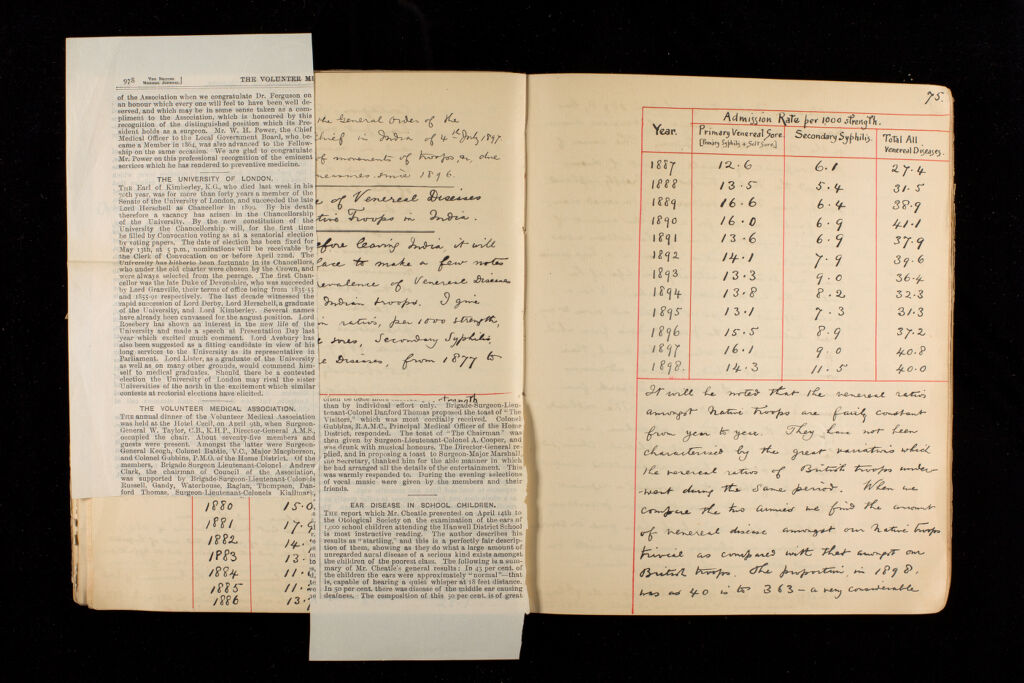 978 THE BRITISH MEDICAL JOURNAL] THE VOLUNTER ME
of the Association when we congratulate Dr. Ferguson on
an honour which every one will feel to have been well de-
served, and which may be in some sense taken as a com-
pliment to the Association, which is honoured by this
recognition of the distinguished position which its Pre-
sident holds as a surgeon. Mr. W. H. Power, the Chief
Medical Officer to the Local Government Board, who be-
came a Member in 1864, was also advanced to the Fellow-
ship on the same occasion. We are glad to congratulate
Mr. Power on this professional recognition of the eminent
services which he has rendered to preventive medicine.
THE UNIVERSITY OF LONDON.
THE Earl of Kimberley, K.G., who died last week in his
70th year, was for more than forty years a member of the
Senate of the University of London, and succeeded the late
Lord Herschell as Chancellor in 1899. By his death
therefore a vacancy has arisen in the Chancellorship
of the University. By the new constitution of the
University the Chancellorship will, for the first time
be filled by Convocation voting as at a senatorial election
by voting papers. The date of election has been fixed for
May 13th, at 5 p.m., nominations will be receivable by
the Clerk of Convocation on or before April 22nd. The
University has hitherto been fortunate in its Chancellors,
who under the old charter were chosen by the Crown, and
were always selected from the peerage. The first Chan-
cellor was the late Duke of Devonshire, who was succeeded
by Lord Granville, their terms of office being from 1835-55
and 1855-91 respectively. The last decade witnessed the
rapid succession of Lord Derby, Lord Herschell, a graduate
of the University, and Lord Kimberley. Several names
have already been canvassed for the august position. Lord
Rosebery has shown an interest in the new life of the
University and made a speech at Presentation Day last
year which excited much comment. Lord Avebury has
also been suggested as a fitting candidate in view of his
long services to the University as its representative in
Parliament. Lord Lister, as a graduate of the University
as well as on many other grounds, would commend him-
self to medical graduates. Should there be a contested
election the University of London may rival the sister
Universities of the north in the excitement which similar
contests at rectorial elections have elicited.
THE VOLUNTEER MEDICAL ASSOCIATION.
THE annual dinner of the Volunteer Medical Association
was held at the Hotel Cecil, on April 9th, when Surgeon-
General W. Taylor, C.B., K.H.P., Director-General A.M.S.,
occupied the chair. About seventy-five members and
guests were present. Amongst the latter were Surgeon-
General Keogh, Colonel Babtie, V.C., Major Macpherson,
and Colonel Gubbins, P.M.O. of the Home District. Of the
members, Brigade Surgeon Lieutenant-Colonel Andrew
Clark, the chairman of Council of the Association,
was supported by Brigade-Surgeon-Lieutenant-Colonels
Russell, Gandy, Waterhouse, Raglan, Thompson, Dan-
ford Thomas, Surgeon-Lieutenant-Colonels Kiallmark,
1880 15.0
1881 17.9
1882 14.
1883 13.
1884 11.
1885 11.
1886 13.
the General Order of the
Chief in India of 4th July, 1897.
of movements of troops, &c, due
since 1896.
e of Venereal Diseases
tive Troops in India.
efore leaving India it will
lace to make a few notes
revalence of Venereal Diseases
Indian troops. I give
in ratios, per 1000 strength,
sores, Secondary Syphilis,
e Diseases, from 1877 to
strength
than by individual effort only. Brigade-Surgeon-Lieu-
tenant-Colonel Danford Thomas proposed the toast of "The
Visitors," which was most cordially received. Colonel
Gubbins, R.A.M.C., Principal Medical Officer of the Home
District, responded. The toast of "The Chairman" was
then given by Surgeon-Lieutenant-Colonel A. Cooper, and
was drunk with musical honours. The Director-General re-
plied, and in proposing a toast to Surgeon-Major Marshall,
the Secretary, thanked him for the able manner in which
he had arranged all the details of the entertainment. This
was warmly responded to. During the evening selections
of vocal music were given by the members and their
friends.
EAR DISEASE IN SCHOOL CHILDREN.
THE report which Mr. Cheatle presented on April 14th to
the Otological Society on the examination of the ears of
1,000 school children attending the Hanwell District School
is most instructive reading. The author describes his
results as "startling," and this is a perfectly fair descrip-
tion of them, showing as they do what a large amount of
unregarded aural disease of a serious kind exists amongst
the children of the poorest class. The following is a sum-
mary of Mr. Cheatle's general results: In 45 per cent. of
the children the ears were approximately "normal"—that
is, capable of hearing a quiet whisper at 18 feet distance.
In 50 per cent. there was disease of the middle ear causing
deafness. The composition of this 50 per cent. is of great
75.
Admission Rate per 1000 strength.
Year. Primary Venereal Sore. [Primary Syphilis & Soft Sore.] Secondary Syphilis. Total All Venereal Diseases.
1887 12.6 6.1 27.4
1888 13.5 5.4 31.5
1889 16.6 6.4 38.9
1890 16.0 6.9 41.1
1891 13.6 6.9 37.9
1892 14.1 7.9 39.6
1893 13.3 9.0 36.4
1894 13.8 8.2 32.3
1895 13.1 7.3 31.3
1896 15.5 8.9 37.2
1897 16.1 9.0 40.8
1898. 14.3 11.5 40.0
It will be noted that the venereal ratios
amongst Native troops are fairly constant
from year to year. They have not been
characterised by the great variations which
the venereal ratios of British troops under-
-went during the same period. When we
compare the two armies we find the amount
of venereal disease amongst our Native troops
trivial as compared with that amongst our
British troops. The proportion in 1898.
was as 40 is to 363 — a very considerable